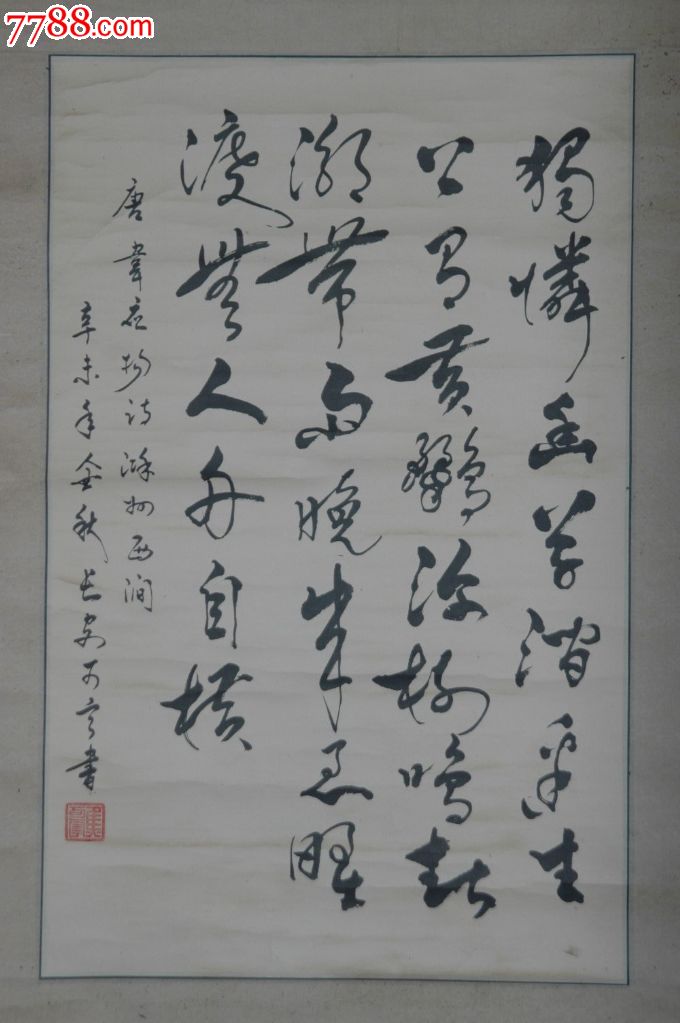 7788.com
獨憐幽草澗邊生
上有黄鸝深樹鳴春
潮帶雨晚來急野
渡無人舟自横
唐韋应物诗滁州西澗
辛未年金秋长安書